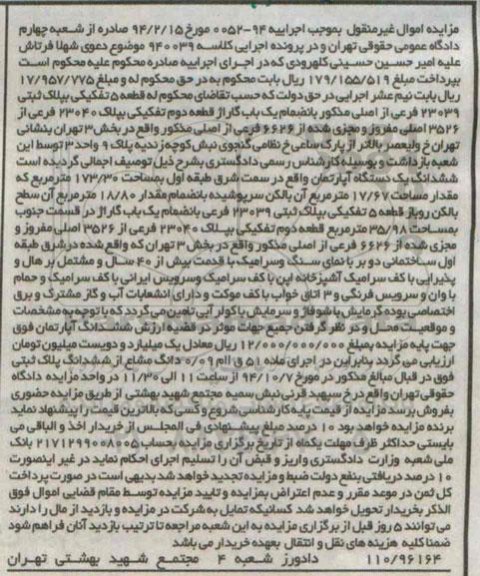 مزایده اموال غیرمنقول بموجب اجراییه ۹۴-۰۰۵۲ مورخ ۹۴/۲/۱۵ صادره از شعبه چهارم
دادگاه عمومی حقوقی تهران و در پرونده اجرایی کلاسه ۹۴۰۰۳۹ موضوع دعوی شهلا فرتاش
علیه امیر حسین حسینی کلهرودی که در اجرای اجراییه صادره محکوم علیه محکوم است
بپرداخت مبلغ ۱۷۹/۱۵۵/۵۱۹ ریال بابت محکوم به در حق محکوم له و مبلغ ۱۷/۹۵۷/۷۷۵
ریال بابت نیم عشر اجرایی در حق دولت که حسب تقاضای محکوم له قطعه ۵ تفکیکی بپلاک ثبتی
۲۳۰۳۹ فرعی از اصلی مذکور بانضمام یک باب گاراژ قطعه دوم تفکیکی بپلاک ۲۳۰۴۰ فرعی از
۳۵۲۶ اصلی مفروز و مجزی شده از ۶۶۲۶ فرعی از اصلی مذکور واقع در بخش ۳ تهران بنشانی
تهران خ ولیعصر بالاتر از پارک ساعی خ نظامی گنجوی نبش کوچه زندیه پلاک ۹ واحد ۳ توسط این
شعبه بازداشت و بوسیله کارشناس رسمی دادگستری بشرح ذیل توصیف اجمالی گردیده است
ششدانگ یک دستگاه آپارتمان واقع در سمت شرق طبقه اول بمساحت ۱۷۳/۳۰ مترمربع که
مقدار مساحت ۱۷/۶۷ مترمربع آن بالکن سرپوشیده بانضمام مقدار ۱۸/۸۰ مترمربع آن سطح
بالکن روباز قطعه ۵ تفکیکی بپلاک ثبتی ۲۳۰۳۹ فرعی بانضمام یک باب گاراژ در قسمت جنوب
بمساحت ۳۵/۹۸ مترمربع قطعه دوم تفکیکی بپلاک ۲۳۰۴۰ فرعی از ۳۵۲۶ اصلی مفروز و
مجزی شده از ۶۶۲۶ فرعی از اصلی مذکور واقع در بخش ۳ تهران که واقع شده در شرق طبقه
اول ساختمانی دو بر با نمای سنگ و سرامیک با قدمت بیش از ۴۰ سال و مشتمل بر هال و
پذیرایی با کف سرامیک آشپزخانه اپن با کف سرامیک و سرویس ایرانی با کف سرامیک و حمام
با وان و سرویس فرنگی و ۳ اتاق خواب با کف موکت و دارای انشعابات آب و گاز مشترک و برق
اختصاصی بوده گرمایش با شوفاژ و سرمایش با کولر آبی تامین می گردد که با توجه به مشخصات
و موقعیت محل و در نظر گرفتن جمیع جهات موثر در قضیه ارزش ششدانگ آپارتمان فوق
جهت پایه مزایده بمبلغ ۱۲/۰۰۰/۰۰۰/۰۰۰ ریال معادل یک میلیارد و دویست میلیون تومان
ارزیابی می گردد بنابراین در اجرای ماده ۵۱ ق اام ۰/۰۹ دانگ مشاع از ششدانگ پلاک ثبتی
فوق در قبال مبالغ مذکور در مورخ ۹۴/۱۰/۷ از ساعت ۱۱ الی ۱۱/۳۰ در واحد مزایده دادگاه
حقوقی تهران واقع در خ سپهبد قرنی نبش سمیه مجتمع شهید بهشتی از طریق مزایده حضوری
بفروش برسد مزایده از قیمت پایه کارشناسی شروع و کسی که بالاترین قیمت را پیشنهاد نماید
برنده مزایده خواهد بود ۱۰ درصد مبلغ پیشنهادی فی المجلس از خریدار اخذ و الباقی می
بایستی حداکثر ظرف مهلت یکماه از تاریخ برگزاری مزایده بحساب ۲۱۷۱۲۹۹۰۰۸۰۰۵ بانک
ملی شعبه وزارت دادگستری واریز و قبض آن را تسلیم اجرای احکام نماید در غیر اینصورت
۱۰ درصد دریافتی بنفع دولت ضبط و مزایده تجدید خواهد شد بدیهی است در صورت پرداخت
کل ثمن در موعد مقرر و عدم اعتراض بمزایده و تایید مزایده توسط مقام قضایی اموال فوق
الذکر بخریدار تحویل خواهد شد کسانیکه تمایل به شرکت در مزایده و بازدید از مال را دارند
می توانند ۵ روز قبل از برگزاری مزایده به این شعبه مراجعه تا ترتیب بازدید آنان فراهم شود
ضمنا کلیه هزینه های نقل و انتقال بعهده خریدار می باشد
۱۱۰/۹۶۱۶۴ دادورز شعبه ۴ مجتمع شهید بهشتی تهران